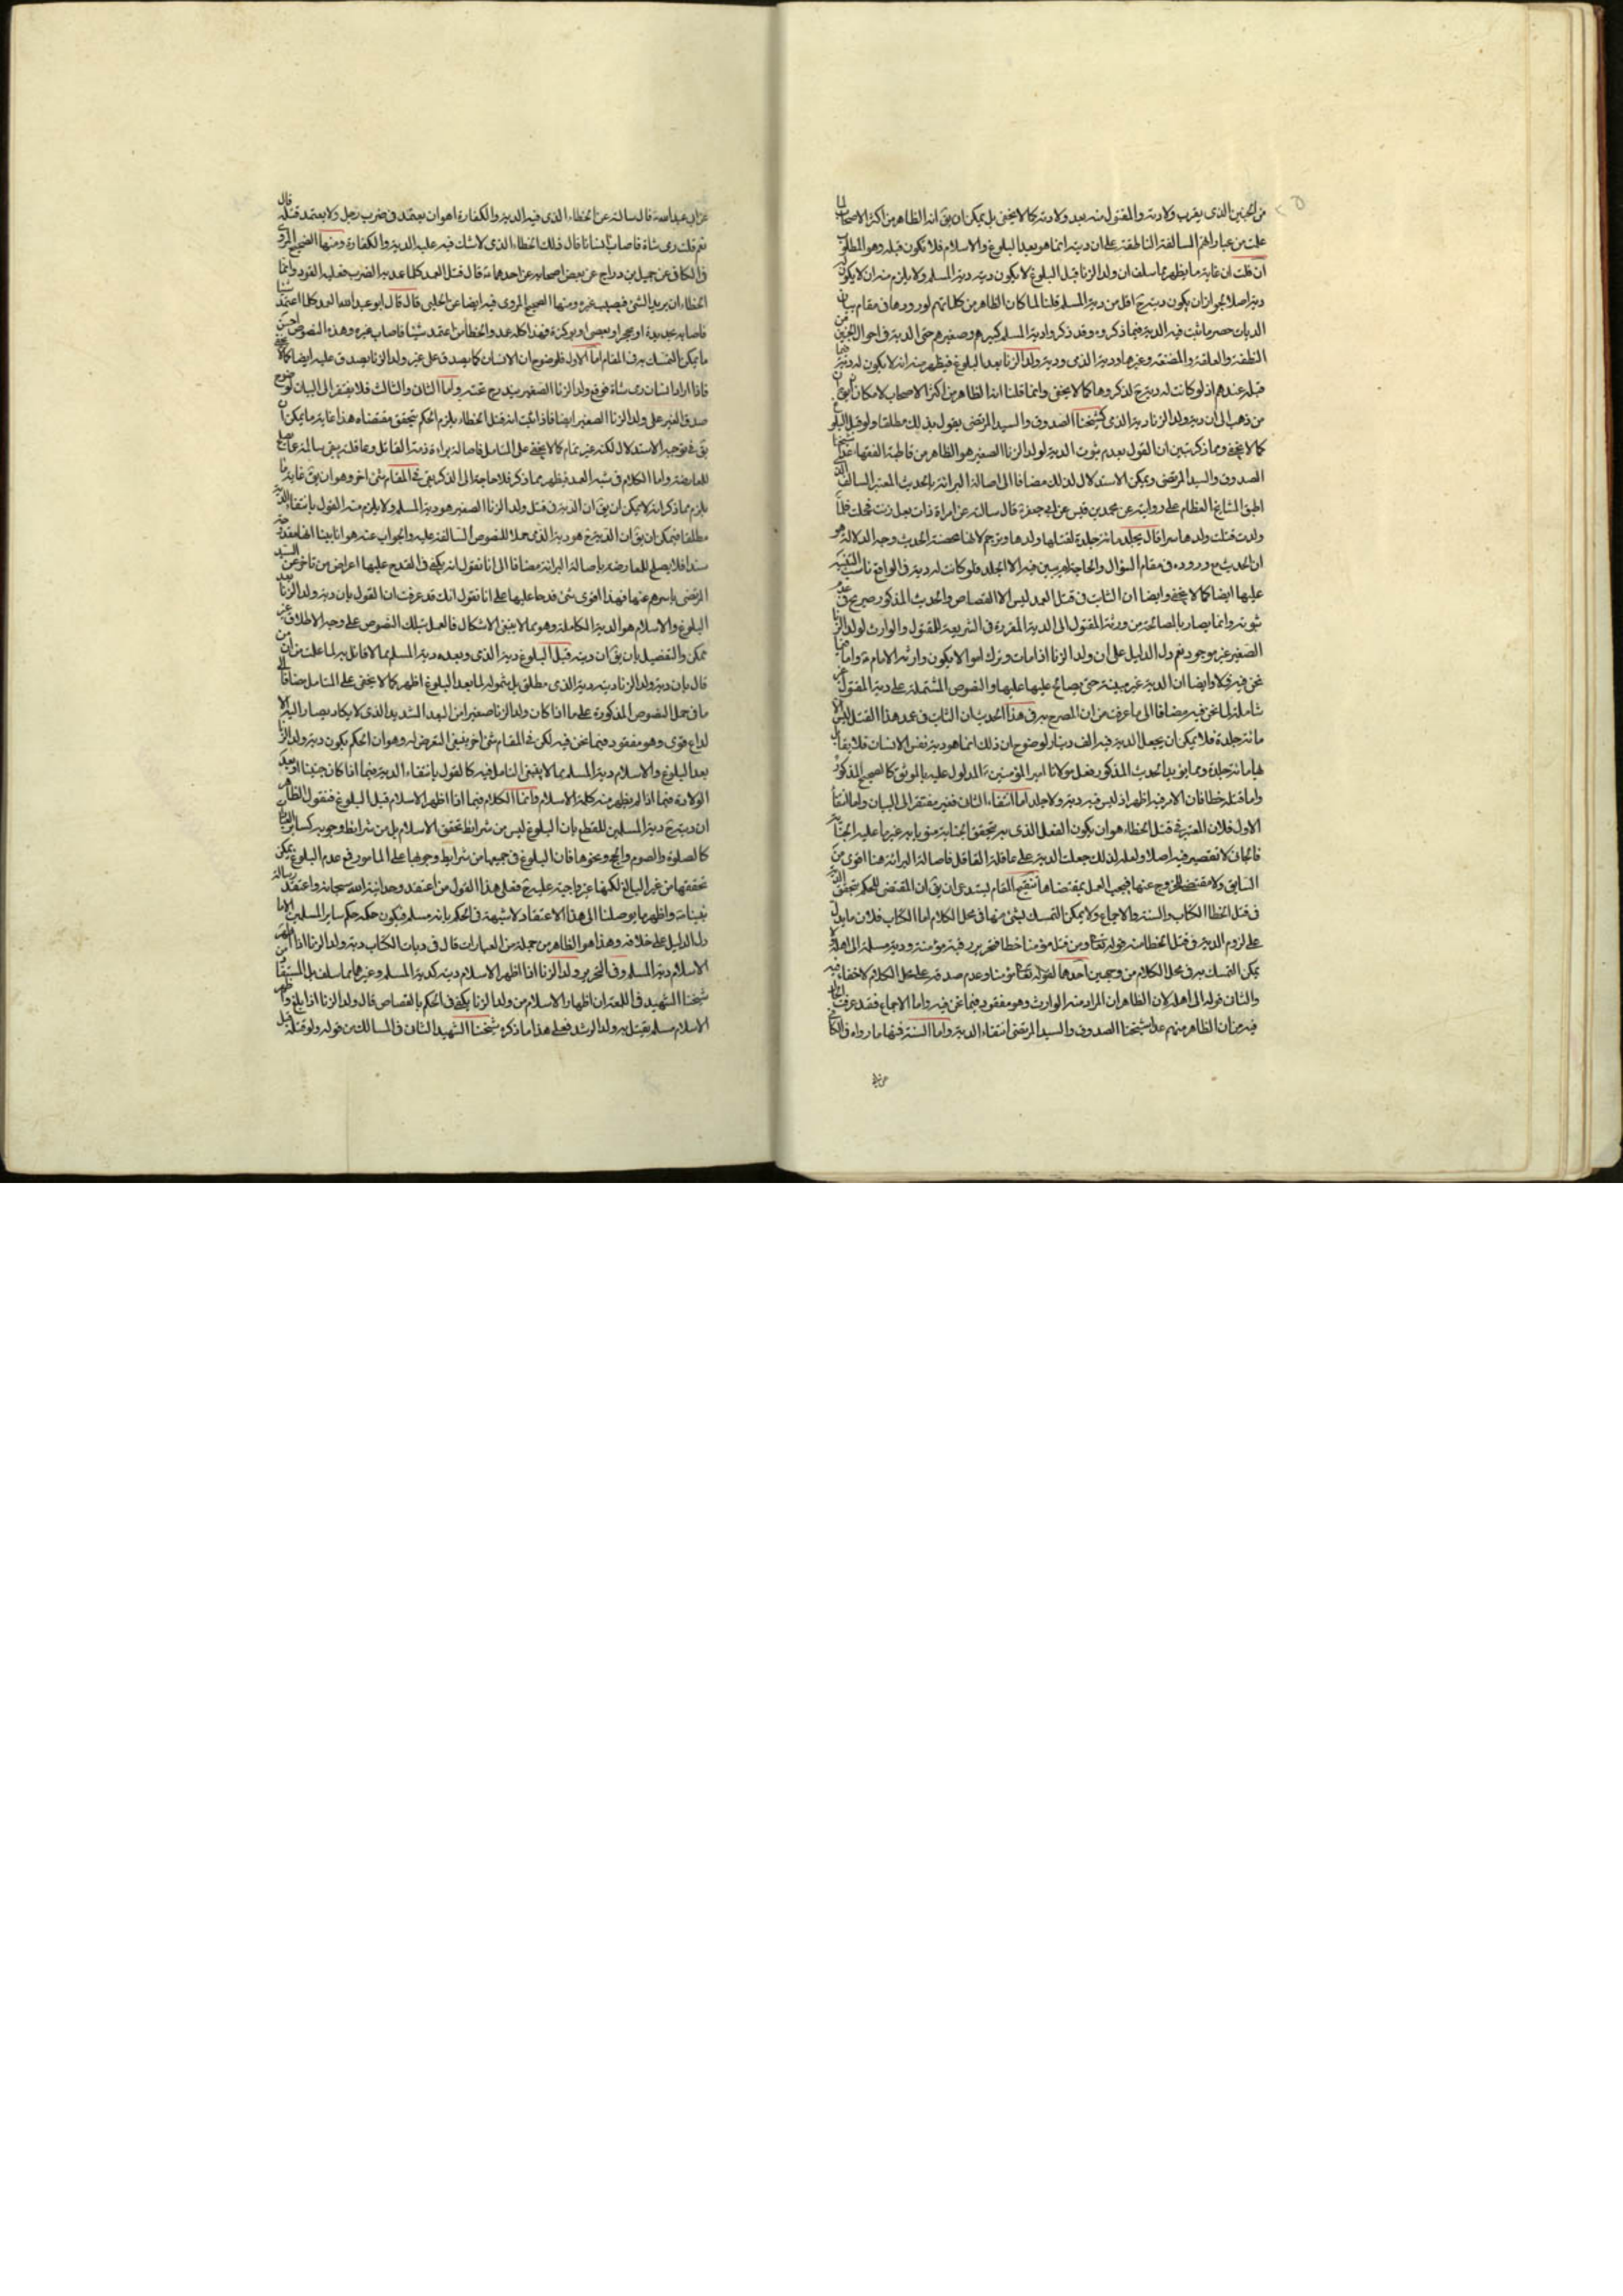 من الجنين الذى يقرب ولادته والمقتول منه بعد ولادته كما لا يخفى بل يمكن ان يق انه الظاهر من اكثر الاصحاب لما
علمت من عباراتهم السالفة الناطقة على ان ديته انما هو بعد البلوغ والاسلام فلا تكون قبله وهو المطلوب
ان قلت ان غاية ما يظهر مما سلف ان ولد الزنا قبل البلوغ لا يكون ديته دية المسلم ولا يلزم منه ان لا يكون
ديته اصلا لجواز ان يكون ديته ح اقل من دية المسلم قلنا لما كان الظاهر من كلماتهم لورودها فى مقام بيان
الديات حصر ما ثبت فيه الدية فيما ذكروه وقد ذكروا دية المسلم كبيرهم وصغيرهم حتى الدية فى احوال الجنين من
النطفة والعلقة والمضغة وغيرها ودية الذمى ودية ولد الزنا بعد البلوغ فيظهر منه انه لا يكون له دية
قبله عندهم اذ لو كانت له دية ح لذكروها كما لا يخفى وانما قلنا انه الظاهر من اكثر الاصحاب لامكان ان يق ان
من ذهب الى ان دية ولد الزنا دية الذمى كشيخنا الصدوق والسيد المرتضى يقول بذلك مطلقا ولو قبل البلوغ
كما لا يخفى ومما ذكر تبين ان القول بعدم ثبوت الدية لولد الزنا الصغير هو الظاهر من قاطبة الفقهاء عدا شيخنا
الصدوق والسيد المرتضى ويمكن الاستدلال لذلك مضافا الى اصالة البرائة بالحديث المعتبر السالف الذى
اطبق المشايخ العظام على روايته عن محمد بن قيس عن ابى جعفرع قال سالته عن امراة ذات بعل زنت فحملت فلما
ولدت قتلت ولدها سرا قال يجلد مائة جلدة لقتلها ولدها وترجم لانها محصنة الحديث وجه الدلالة هو
ان الحديث مع وروده فى مقام السؤال والحاجة لم يبين فيه الا الجلد فلو كانت له دية فى الواقع ناسب التنبيه
عليها ايضا كما لا يخفى وايضا ان الثابت فى قتل العمد ليس الا القصاص والحديث المذكور صريح فى عدم
ثبوته وانما يصار بالمصالحة من ورثة المقتول الى الدية المقررة فى الشريعة للمقتول والوارث لولد الزنا
الصغير غير موجود نعم دل الدليل على ان ولد الزنا اذا مات وترك اموالا يكون وارثه الامام ع واما فيما
نحن فيه فلا وايضا ان الدية غير مبينة حتى يصالح عليها عليها والنصوص المشتملة على دية المقتول غير
شاملة لما نحن فيه مضافا الى ما عرفت من ان المصرح به فى هذا الحديث ان الثابت فى عمد هذا القتل ليس الا
مائة جلدة فلا يمكن ان يجعل الدية فيه الف دينار لوضوح ان ذلك انما هو دية نفس الانسان فلا يقابل
لها مائة جلدة ومما يؤيد الحديث المذكور فعل مولانا امير المؤمنين ع المدلول عليه بالموثق كالصحيح المذكور
واما قتله خطا فان الامر فيه اظهر اذ ليس فيه دية ولا جلد اما انتفاء الثانى فغير مفتقر الى البيان واما انتفاء
الاول فلان المعتبر فى قتل الخطاء هو ان يكون الفعل الذى به تحقق الجناية منويا به غير ما عليه الجناية
فالجانى لا تقصير فيه اصلا ولعله لذلك جعلت الدية على عاقلة القاتل فاصالة البرائة هنا اقوى من
السابق ولا مقتضى للخروج عنها فيجب العمل بمقتضاها تنقيح المقام يستدعى ان يق ان المقتضى للحكم بتحقق الدية
فى قتل الخطا الكتاب والسنة والاجماع ولا يمكن التمسك بشئ منها فى محل الكلام اما الكتاب فلان ما يدل
على لزوم الدية فى قتل الخطا منه قوله تعالى ومن قتل مؤمنا خطا فتحرير رقبة مؤمنة ودية مسلمة الى اهله لا
يمكن التمسك به فى محل الكلام من وجهين احدهما لقوله تعالى مؤمنا وعدم صدقه على محل الكلام لا خفاء فيه
والثانى قوله الى اهله لان الظاهر ان المراد منه الوارث وهو مفقود فيما نحن فيه واما الاجماع فقد عرفت الحال
فيه من ان الظاهر منهم عدا شيخنا الصدوق والسيد المرتضى انتفاء الدية واما السنة فمنها ما رواه فى الكافى
عن ابى
عن ابى عبد الله ع قال سالته عن الخطاء الذى فيه الدية والكفارة اهو ان يعتمد ضرب رجل ولا يعتمد قتله قال
نعم قلت رمى شاة فاصاب انسانا قال ذلك الخطاء الذى لا شك فيه عليه الدية والكفارة ومنها الصحيح المروى
فى الكافى عن جميل بن دراج عن بعض اصحابه عن احدهما ع قال قتل العمد كلما عمد به الضرب فعليه القود وانما
الخطاء ان يريد الشئ فيصيب غيره ومنها الصحيح المروى فيه ايضا عن الحلبى قال قال ابو عبد الله ع العمد كلما اعتمد شيئا
فاصابه بحديدة او بحجر او بعصى او بوكزة فهذا كله عمد والخطا من اعتمد شيئا فاصاب غيره وهذه النصوص احسن
ما يمكن التمسك به فى المقام اما الاول فلوضوح ان الانسان كما يصدق على غير ولد الزنا يصدق عليه ايضا كما لا يخفى
فاذا اراد انسان رمى شاة فوقع ولد الزنا الصغير يندرج تحته واما الثانى والثالث فلا يفتقر الى البيان لوضوح
صدق الغير على ولد الزنا الصغير ايضا فاذا ثبت انه قتل الخطاء يلزم الحكم بتحقق مقتضاه هذا غاية ما يمكن ان
يق فى توجيه الاستدلال لكنه غير تمام كما لا يخفى على المتامل فاصالة براءة ذمة القاتل وعاقلته يبقى سالمة عما يصلح
للمعارضة واما الكلام فى شبه العمد فيظهر مما ذكر فلا حاجة الى الذكر بقى فى المقام شئ اخر وهو ان يق غاية ما
يلزم مما ذكر انه لا يمكن ان يق ان الدية فى قتل ولد الزنا الصغير هو دية المسلم ولا يلزم منه القول بانتفاء الدية
مطلقا فيمكن ان يق ان الدية ح هو دية الذمى حملا للنصوص السالفة عليه والجواب عنه هو انا بينا انها مقدوحة
سندا فلا يصلح للمعارضة باصالة البرائة مضافا الى انا نقول انه يكفى فى القدح عليها اعراض من تاخر عن السيد
المرتضى باسرهم عنها فهذا اقوى شئ قدحا عليها على انا نقول انك قد عرفت ان القول بان دية ولد الزنا بعد
البلوغ والاسلام هو الدية الكاملة وهو مما لا ينبغى الاشكال فالعمل بتلك النصوص على وجه الاطلاق غير
ممكن والتفصيل بان يق ان ديته قبل البلوغ دية الذمى وبعده دية المسلم مما لا قائل به لما علمت من ان من
قال بان دية ولد الزنا دية الذمى مطلق بل شموله لما بعد البلوغ اظهر كما لا يخفى على المتامل مضافا الى
ما فى حمل النصوص المذكورة على ما اذا كان ولد الزنا صغيرا من البعد الشديد الذى لا يكاد يصار اليه الا
لداع قوى وهو مفقود فيما نحن فيه لكن فى المقام شئ اخر ينبغى التعرض له وهو ان الحكم بكون دية ولد الزنا
بعد البلوغ والاسلام دية المسلم مما لا ينبغى التامل فيه كالقول بانتفاء الدية فيما اذا كان جنينا او بعد
الولادة فيما اذا لم يظهر منه كلمة الاسلام وانما الكلام فيما اذا اظهر الاسلام قبل البلوغ فنقول الظاهر
ان ديته ح دية المسلمين للقطع بان البلوغ ليس من شرايط تحقق الاسلام بل من شرايط وجوبه كساير العبادات
كالصلوة والصوم والحج ونحوها فان البلوغ فى جميعها من شرايط وجوبها على المامور فمع عدم البلوغ يمكن
تحققها من غير البالغ لكنها غير واجبة عليه ح فعلى هذا القول من اعتقد وحدانية الله سبحانه واعتقد رسالة
نبينا ص واظهر ما يوصلنا الى هذا الاعتقاد لا شبهة فى الحكم بانه مسلم فيكون حكمه حكم ساير المسلمين الا ما
دل الدليل على خلافه وهذا هو الظاهر من جملة من العبارات قال فى ديات الكتاب دية ولد الزنا اذا اظهر
الاسلام دية المسلم وفى التحرير ولد الزنا اذا اظهر الاسلام ديته كدية المسلم وغيرهما مما سلف بل المستفاد من
شيخنا الشهيد فى اللمعة ان اظهار الاسلام من ولد الزنا يكفى فى الحكم بالقصاص قال ولد الزنا اذا بلغ واظهر
الاسلام مسلم يقتل به ولد الرشد فعلى هذا ما ذكره شيخنا الشهيد الثانى فى المسالك من قوله ولو قتله قبل